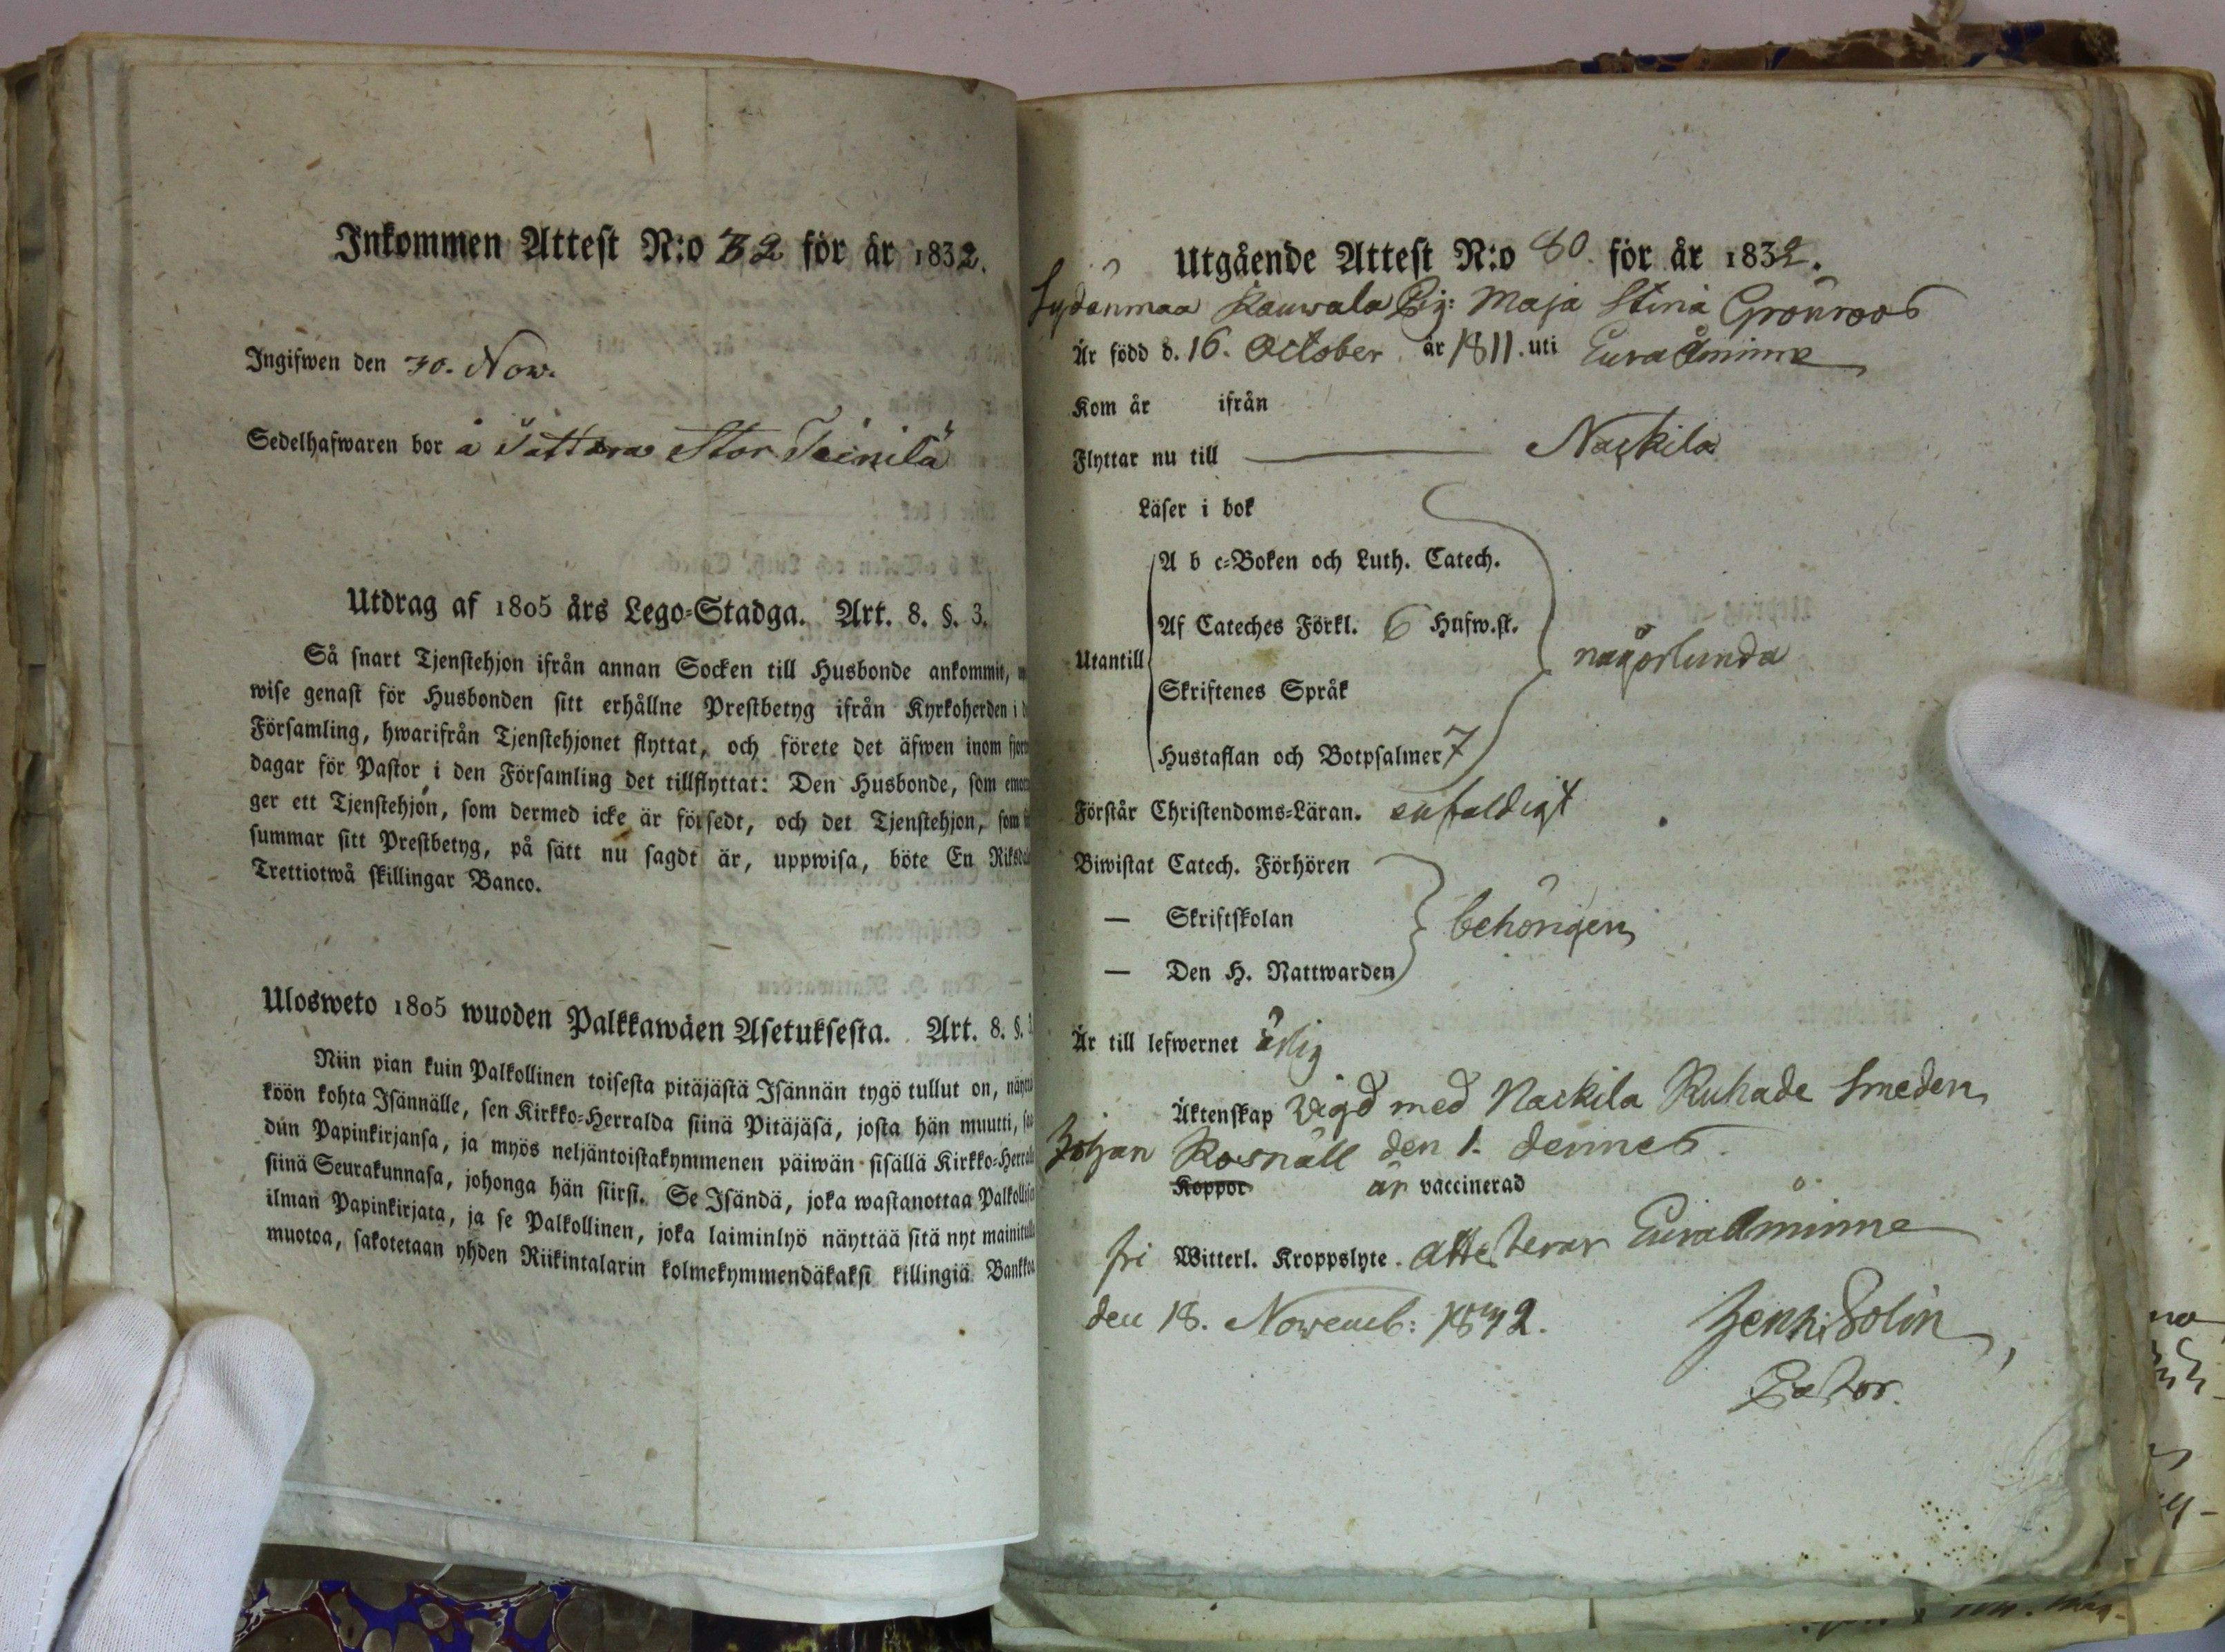 Inkommen Attest N:o 32 för år 1832.
Ingifwen den 30. Now.
Sedelhafwaren bor å Tattara Stor Teinilä
Utdrag af 1805 års Lego-Stadga. Art. 8. §. 3.
Så snart Tjenstehjon ifrån annan Socken till Husbonde ankommit,
wise genast för Husbonden sitt erhållne Prestbetyg ifrån Kyrkoherden i
Församling, hwarifrån Tjenstehjonet flyttat, och förete det äfwen inom
dagar för Pastor i den Församling det tillflyttat: Den Husbonde, som
ger ett Tjenstehjon, som dermed icke är försedt, och det Tjenstehjon, som
summar sitt Prestbetyg, på sätt nu sagdt är, uppwisa, böte En
Trettiotwå skillingar Banco.
Ulosweto 1805 wuoden Palkkawäen Asetuksesta. Art. 8. §. 3
Niin pian kuin Palkollinen toisesta pitäjästä Isännän tygö tullut on,
köön kohta Isännälle, sen Kirkko-Herralda siinä Pitäjäsä, josta hän muutti,
dun Papinkirjansa, ja myös neljäntoistakymmenen päiwän sisällä
siinä Seurakunnasa, johonga hän siirsi. Se Isändä, joka wastanottaa
ilman Papinkirjata, ja se Palkollinen, joka laiminlyö näyttää sitä nyt
muotoa, sakotetaan yhden Riikintalarin kolmekymmendäkaksi killingiä
Utgående Attest N:o 80. för år 1832.
Sydänmaa Kauwala Pig: Maja Stina Grönroos
Är född d. 16. October år 1811. uti Euraåminne
Kom år ifrån
Flyttar nu till Nackila
Läser i bok
A b c-Boken och Luth. Catech.
Af Cateches Förkl. 6 Hufw.st.
Utantill någorlunda
Skriftenes Språk
Hustaflan och Botpsalmer 7
Förstår Christendoms-Läran. enfaldigt
Biwistat Catech. Förhören
— Skriftskolan behörigen
— Den H. Nattwarden
Är till lefwernet ärlig
Äktenskap Vigd med Nackila Ruhade Smeden
Johan Rosnäll den 1. dennes.
Koppor är vaccinerad
fri Witterl. Kroppslyte. attesterar Euraåminne
den 18. Novemb: 1832.
Henr. Bolin,
Pastor.